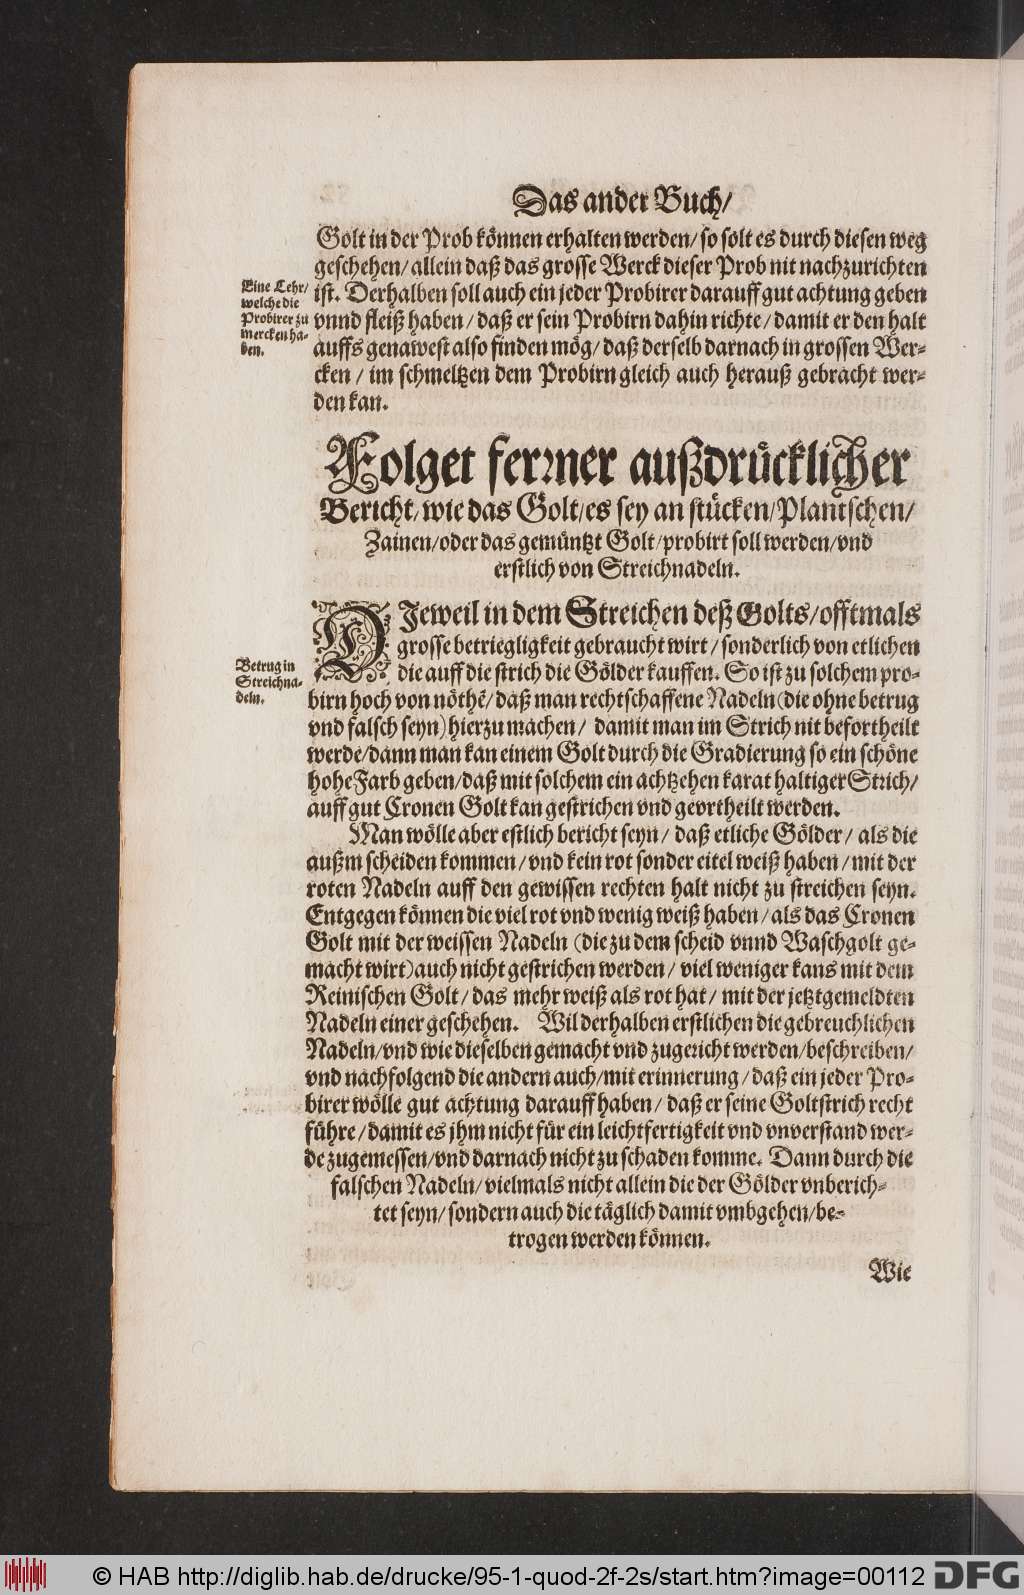 Das ander Buch/
Golt in der Prob können erhalten werden/ so solt es durch diesen weg
geschehen/ allein daß das grosse Werck dieser Prob nit nachzurichten
ist. Derhalben soll auch ein jeder Probirer darauff gut achtung geben
vnnd fleiß haben/ daß er sein Probirn dahin richte/ damit er den halt
auffs genawest also finden mög/ daß derselb darnach in grossen Wer-
cken/ im schmeltzen dem Probirn gleich auch herauß gebracht wer-
den kan.
Eine Lehr/
welche die
Probirer zu
mercken ha-
ben.
Folget ferrner außdrücklicher
Bericht/ wie das Golt/ es sey an stücken/ Plantschen/
Zainen/ oder das gemüntzt Golt/ probirt soll werden/ vnd
erstlich von Streichnadeln.
DIeweil in dem Streichen deß Golts/ offtmals
grosse betriegligkeit gebraucht wirt/ sonderlich von etlichen
die auff die strich die Gölder kauffen. So ist zu solchem pro-
birn hoch von nöthẽ/ daß man rechtschaffene Nadeln (die ohne betrug
vnd falsch seyn) hierzu machen/ damit man im Strich nit befortheilt
werde/ dann man kan einem Golt durch die Gradierung so ein schöne
hohe Farb geben/ daß mit solchem ein achtzehen karat haltiger Strich/
auff gut Cronen Golt kan gestrichen vnd gevrtheilt werden.
Betrug in
Streichna-
deln.
Man wölle aber estlich bericht seyn/ daß etliche Gölder/ als die
außm scheiden kommen/ vnd kein rot sonder eitel weiß haben/ mit der
roten Nadeln auff den gewissen rechten halt nicht zu streichen seyn.
Entgegen können die viel rot vnd wenig weiß haben/ als das Cronen
Golt mit der weissen Nadeln (die zu dem scheid vnnd Waschgolt ge-
macht wirt) auch nicht gestrichen werden/ viel weniger kans mit dem
Reinischen Golt/ das mehr weiß als rot hat/ mit der jetztgemeldten
Nadeln einer geschehen. Wil derhalben erstlichen die gebreuchlichen
Nadeln/ vnd wie dieselben gemacht vnd zugericht werden/ beschreiben/
vnd nachfolgend die andern auch/ mit erinnerung/ daß ein jeder Pro-
birer wölle gut achtung darauff haben/ daß er seine Goltstrich recht
führe/ damit es jhm nicht für ein leichtfertigkeit vnd vnverstand wer-
de zugemessen/ vnd darnach nicht zu schaden komme. Dann durch die
falschen Nadeln/ vielmals nicht allein die der Gölder vnberich-
tet seyn/ sondern auch die täglich damit vmbgehen/ be-
trogen werden können.
Wie
© HAB http://diglib.hab.de/drucke/95-1-quod-2f-2s/start.htm?image=00112
DFG